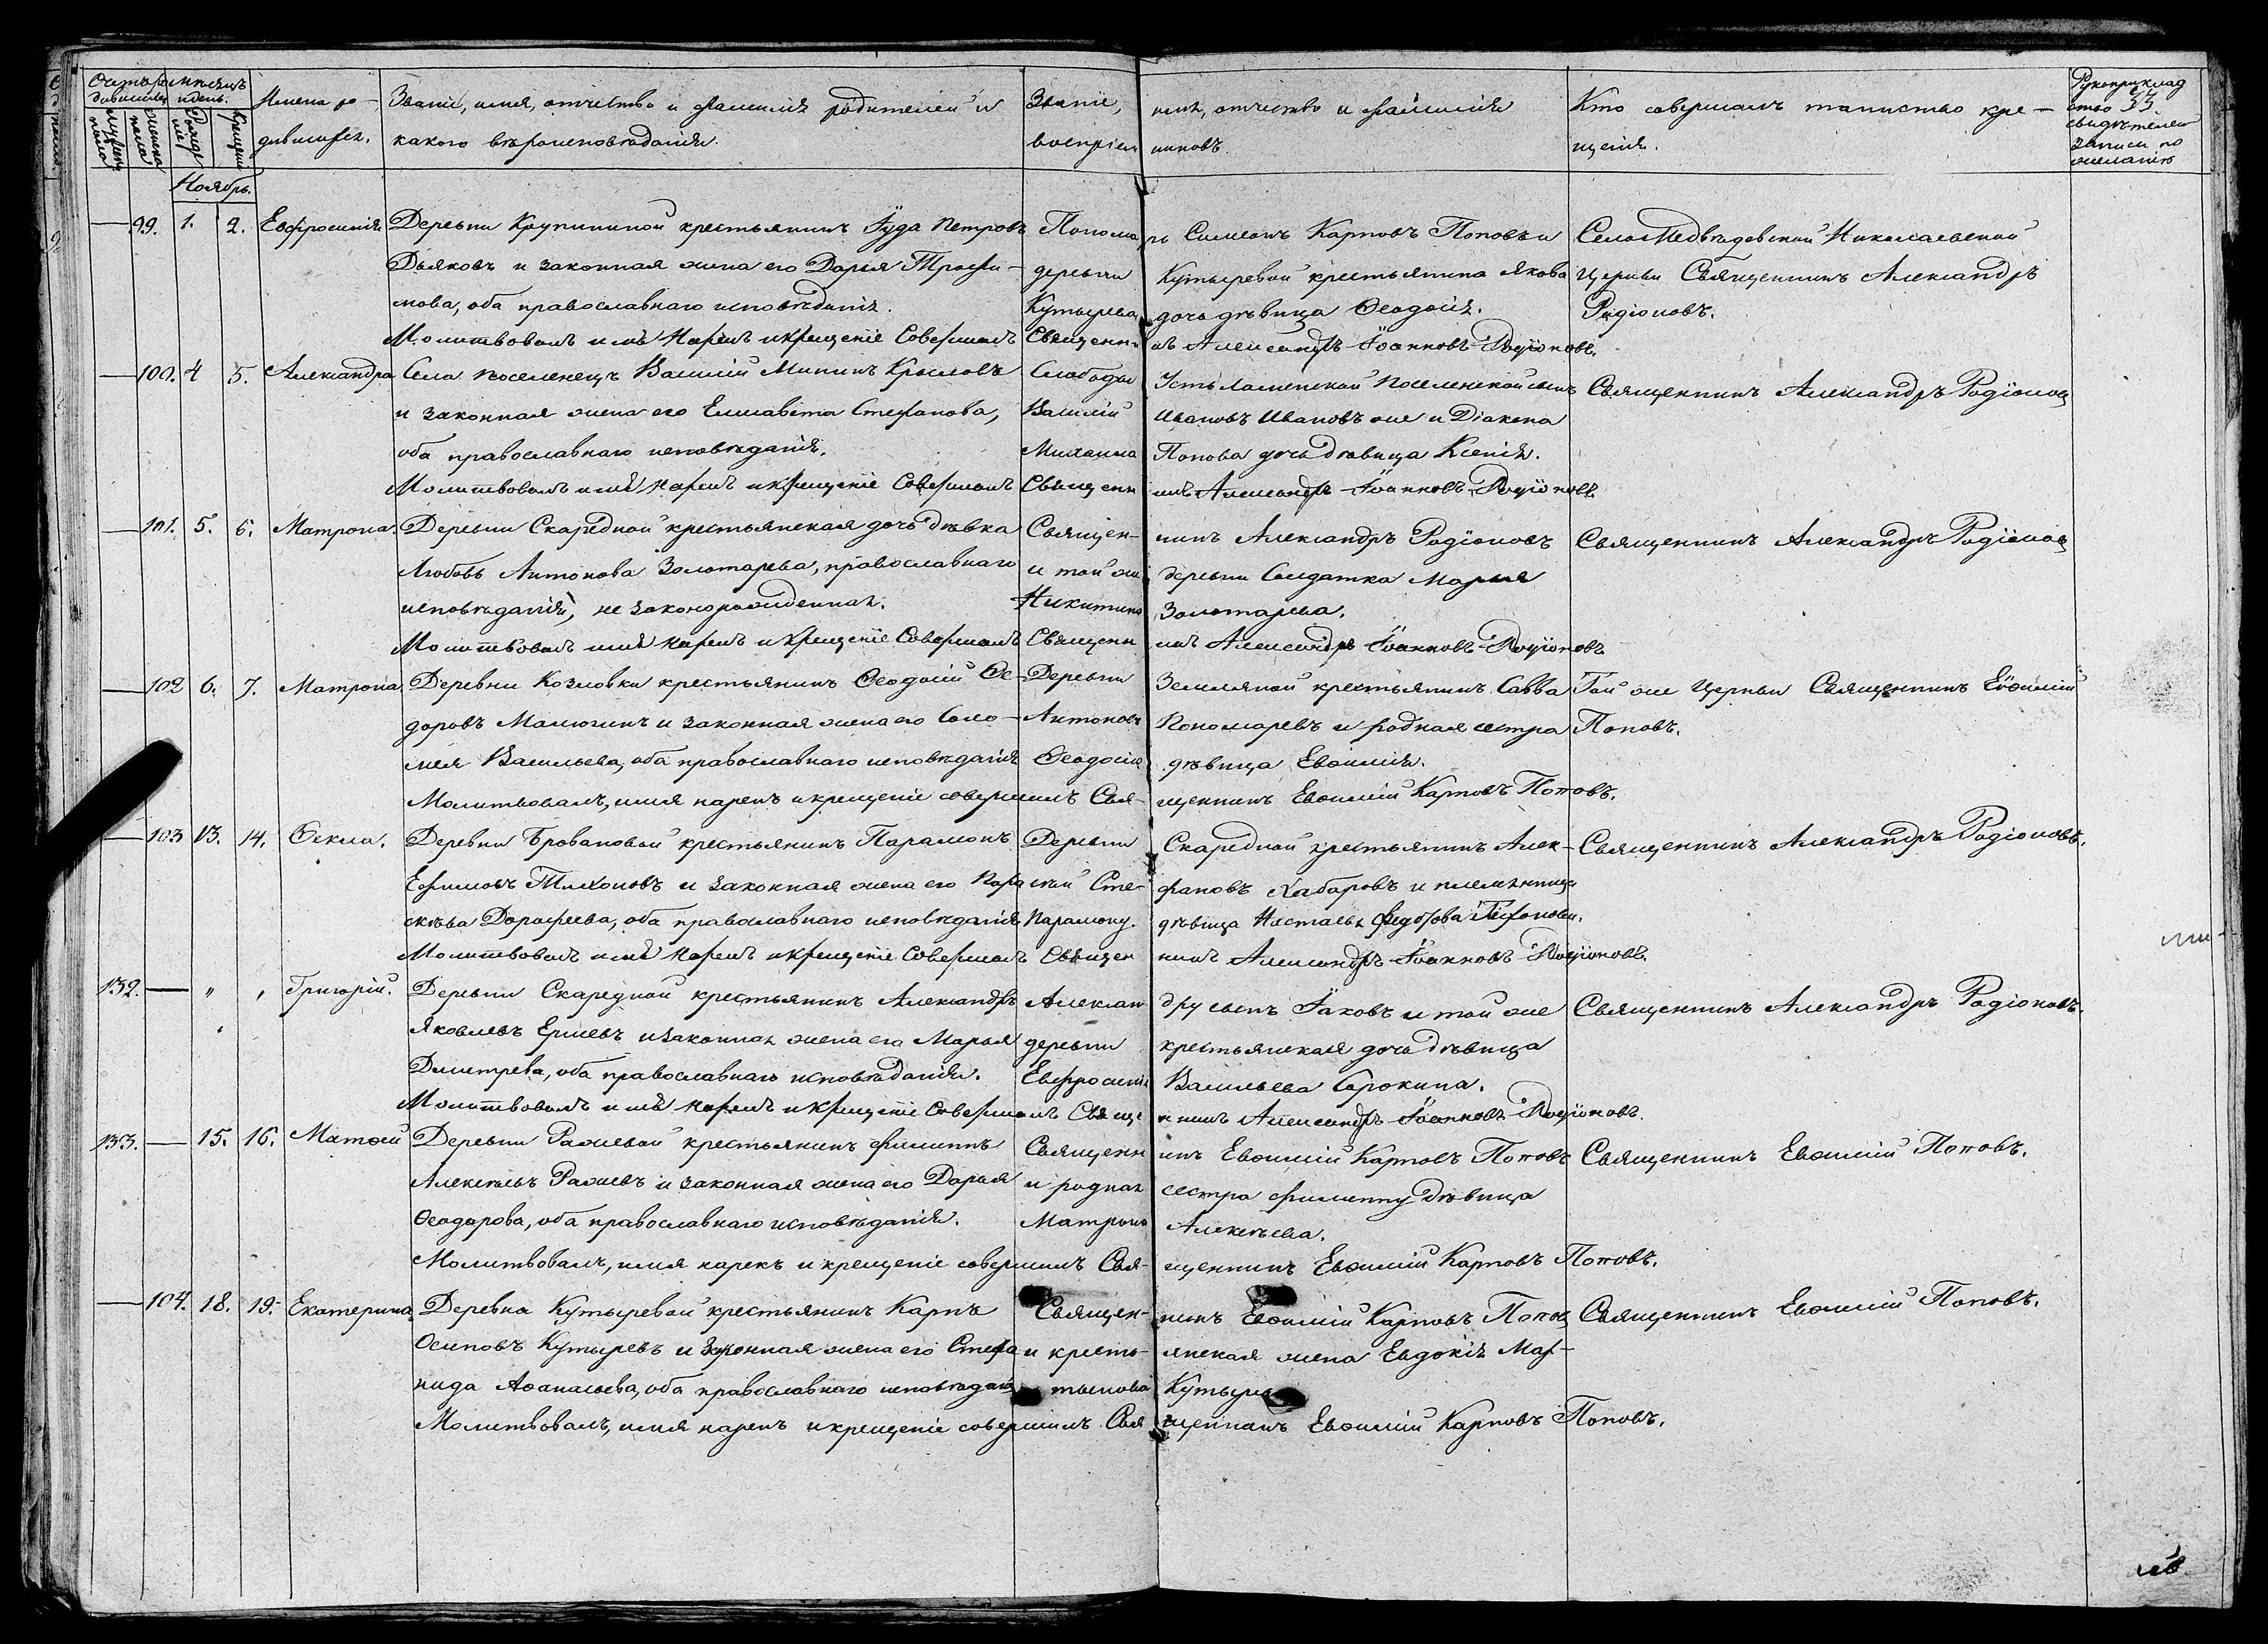 Счетъ родившихся
мѣсяцъ и день.
Имена родившихся.
Званіе, имя, отчество и фамилія родителей и
какого вѣроисповѣданія.
Званіе, имя, отчество и фамилія
воспріемниковъ.
Кто совершалъ таинство кре-
щенія.
Рукоприклад
ство
свидѣтелей
записи по
желанію
33
Ноябрь.
99. 1. 2. Евфросинія Деревни Крупининой крестьянинъ Іуда Петровъ Пономарь Симеонъ Карповъ Поповъ и Села Медвѣдевской Николаевской
Дьяковъ и законная жена его Дарья Трофи- деревни Кутыревой крестьянина Якова Церкви Священникъ Александръ
мова, оба православнаго исповѣданія. Кутырева дочь дѣвица Ѳеодосія. Родіоновъ.
Молитвовалъ имя нарекъ и крещеніе совершалъ Священникъ Александръ Іоанновъ Родіоновъ.
100. 4 5. Александра Села поселенецъ Василій Мининъ Крысловъ Слободы Усть Ламенской поселенской сынъ Священникъ Александръ Родіоновъ
и законная жена его Елисавета Стефанова, Василій Ивановъ Ивановъ же и Діакона
оба православнаго исповѣданія. Михаила Попова дочь дѣвица Ксенія.
Молитвовалъ имя нарекъ и крещеніе совершалъ Священникъ Александръ Іоанновъ Родіоновъ
101. 5. 6. Матрона. Деревни Скаредной крестьянская дочь дѣвка Священникъ Александръ Родіоновъ Священникъ Александръ Родіоновъ
Любовь Антонова Золотарева, православнаго и той же деревни Солдатка Марья
исповѣданія, не законорожденная. Никитина Золотарева.
Молитвовалъ имя нарекъ и крещеніе совершалъ Священникъ Александръ Іоанновъ Родіоновъ
102 6. 7. Матрона. Деревни Козловки крестьянинъ Ѳеодосій Ѳе- Деревни Земляной крестьянинъ Савва Той же Церкви Священникъ Евѳимій
доровъ Малюгинъ и законная жена его Соло- Антоновъ Пономаревъ и родная сестра Поповъ.
мея Васильева, оба православнаго исповѣданія Ѳеодосія дѣвица Евѳимія.
Молитвовалъ, имя нарекъ и крещеніе совершилъ Свя- щенникъ Евѳимій Карповъ Поповъ.
103 13. 14. Ѳекла. Деревни Бровановой крестьянинъ Парамонъ Деревни Скаредной крестьянинъ Алек- Священникъ Александръ Родіоновъ.
Ефимовъ Тихоновъ и законная жена его Пара сѣй Сте- фановъ Хабаровъ и племянница
скѣва Дорофеева, оба православнаго исповѣданія Парамону. дѣвица Настасья Федорова Тихонова.
Молитвовалъ имя нарекъ и крещеніе совершалъ Священ никъ Александръ Іоанновъ Родіоновъ.
132. " " Григорій. Деревни Скаредной крестьянинъ Александръ Алексан дру сынъ Іаковъ и той же Священникъ Александръ Родіоновъ.
Яковлевъ Ершевъ и законная жена его Марья деревни крестьянская дочь дѣвица
Димитрева, оба православнаго исповѣданія. Евфросинія Васильева Сорокина.
Молитвовалъ имя нарекъ и крещеніе совершалъ Свяще нникъ Александръ Іоанновъ Родіоновъ.
133. 15. 16. Матѳей Деревни Ражевой крестьянинъ Филиппъ Священн икъ Евѳимій Карповъ Поповъ Священникъ Евѳимій Поповъ.
Алексѣевъ Ражевъ и законная жена его Дарья и родная сестра Филиппу дѣвица
Ѳеодорова, оба православнаго исповѣданія. Матрона Алексѣева.
Молитвовалъ, имя нарекъ и крещеніе совершилъ Свя- щенникъ Евѳимій Карповъ Поповъ.
104. 18. 19. Екатерина. Деревна Кутыревой крестьянинъ Карпъ Священ- никъ Евѳимій Карповъ Поповъ Священникъ Евѳимій Поповъ.
Осиповъ Кутыревъ и законная жена его Стефа и кресть- янская жена Евдокія Мар-
нида Аѳанасьева, оба православнаго исповѣданія тынова Кутырева
Молитвовалъ, имя нарекъ и крещеніе совершилъ Свя щенникъ Евѳимій Карповъ Поповъ.